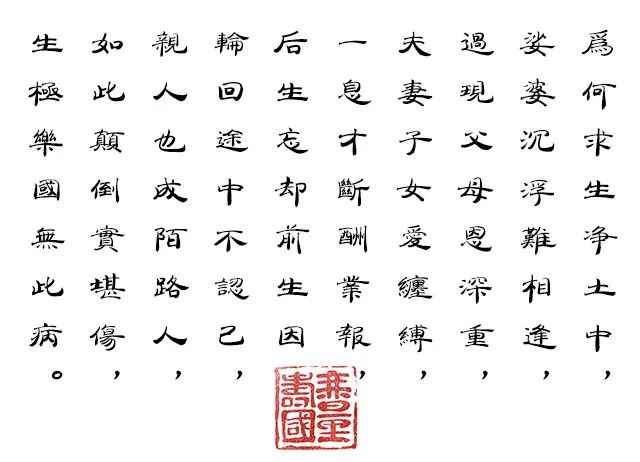 爲何求生净土中，
娑婆沉浮難相逢，
過現父母恩深重，
夫妻子女愛纏縛，
一息才斷酬業報，
后生忘却前生因
輪回途中不認己，
親人也成陌路人，
如此顛倒實堪傷，
生極樂國無此病。